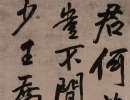 君何
豈不聞
少王